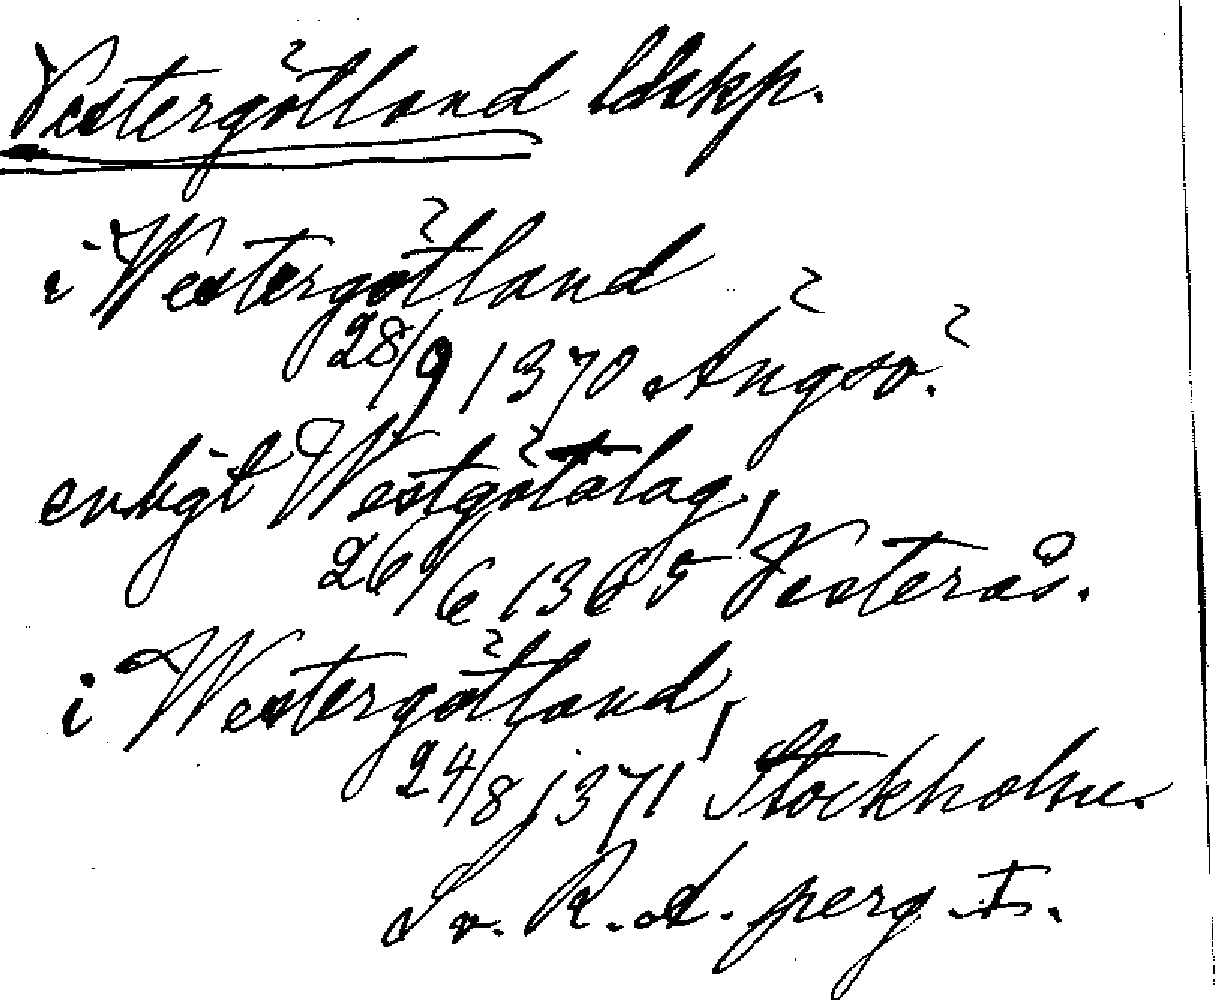 Vestergötland ldskp.
i Westergötland
28/9 1370 Ängsö.
enligt Westgötalag,
26/6 1365 Vesterås.
i Westergötland,
24/8 1371 Stockholm.
Sv. R. A. perg. I.